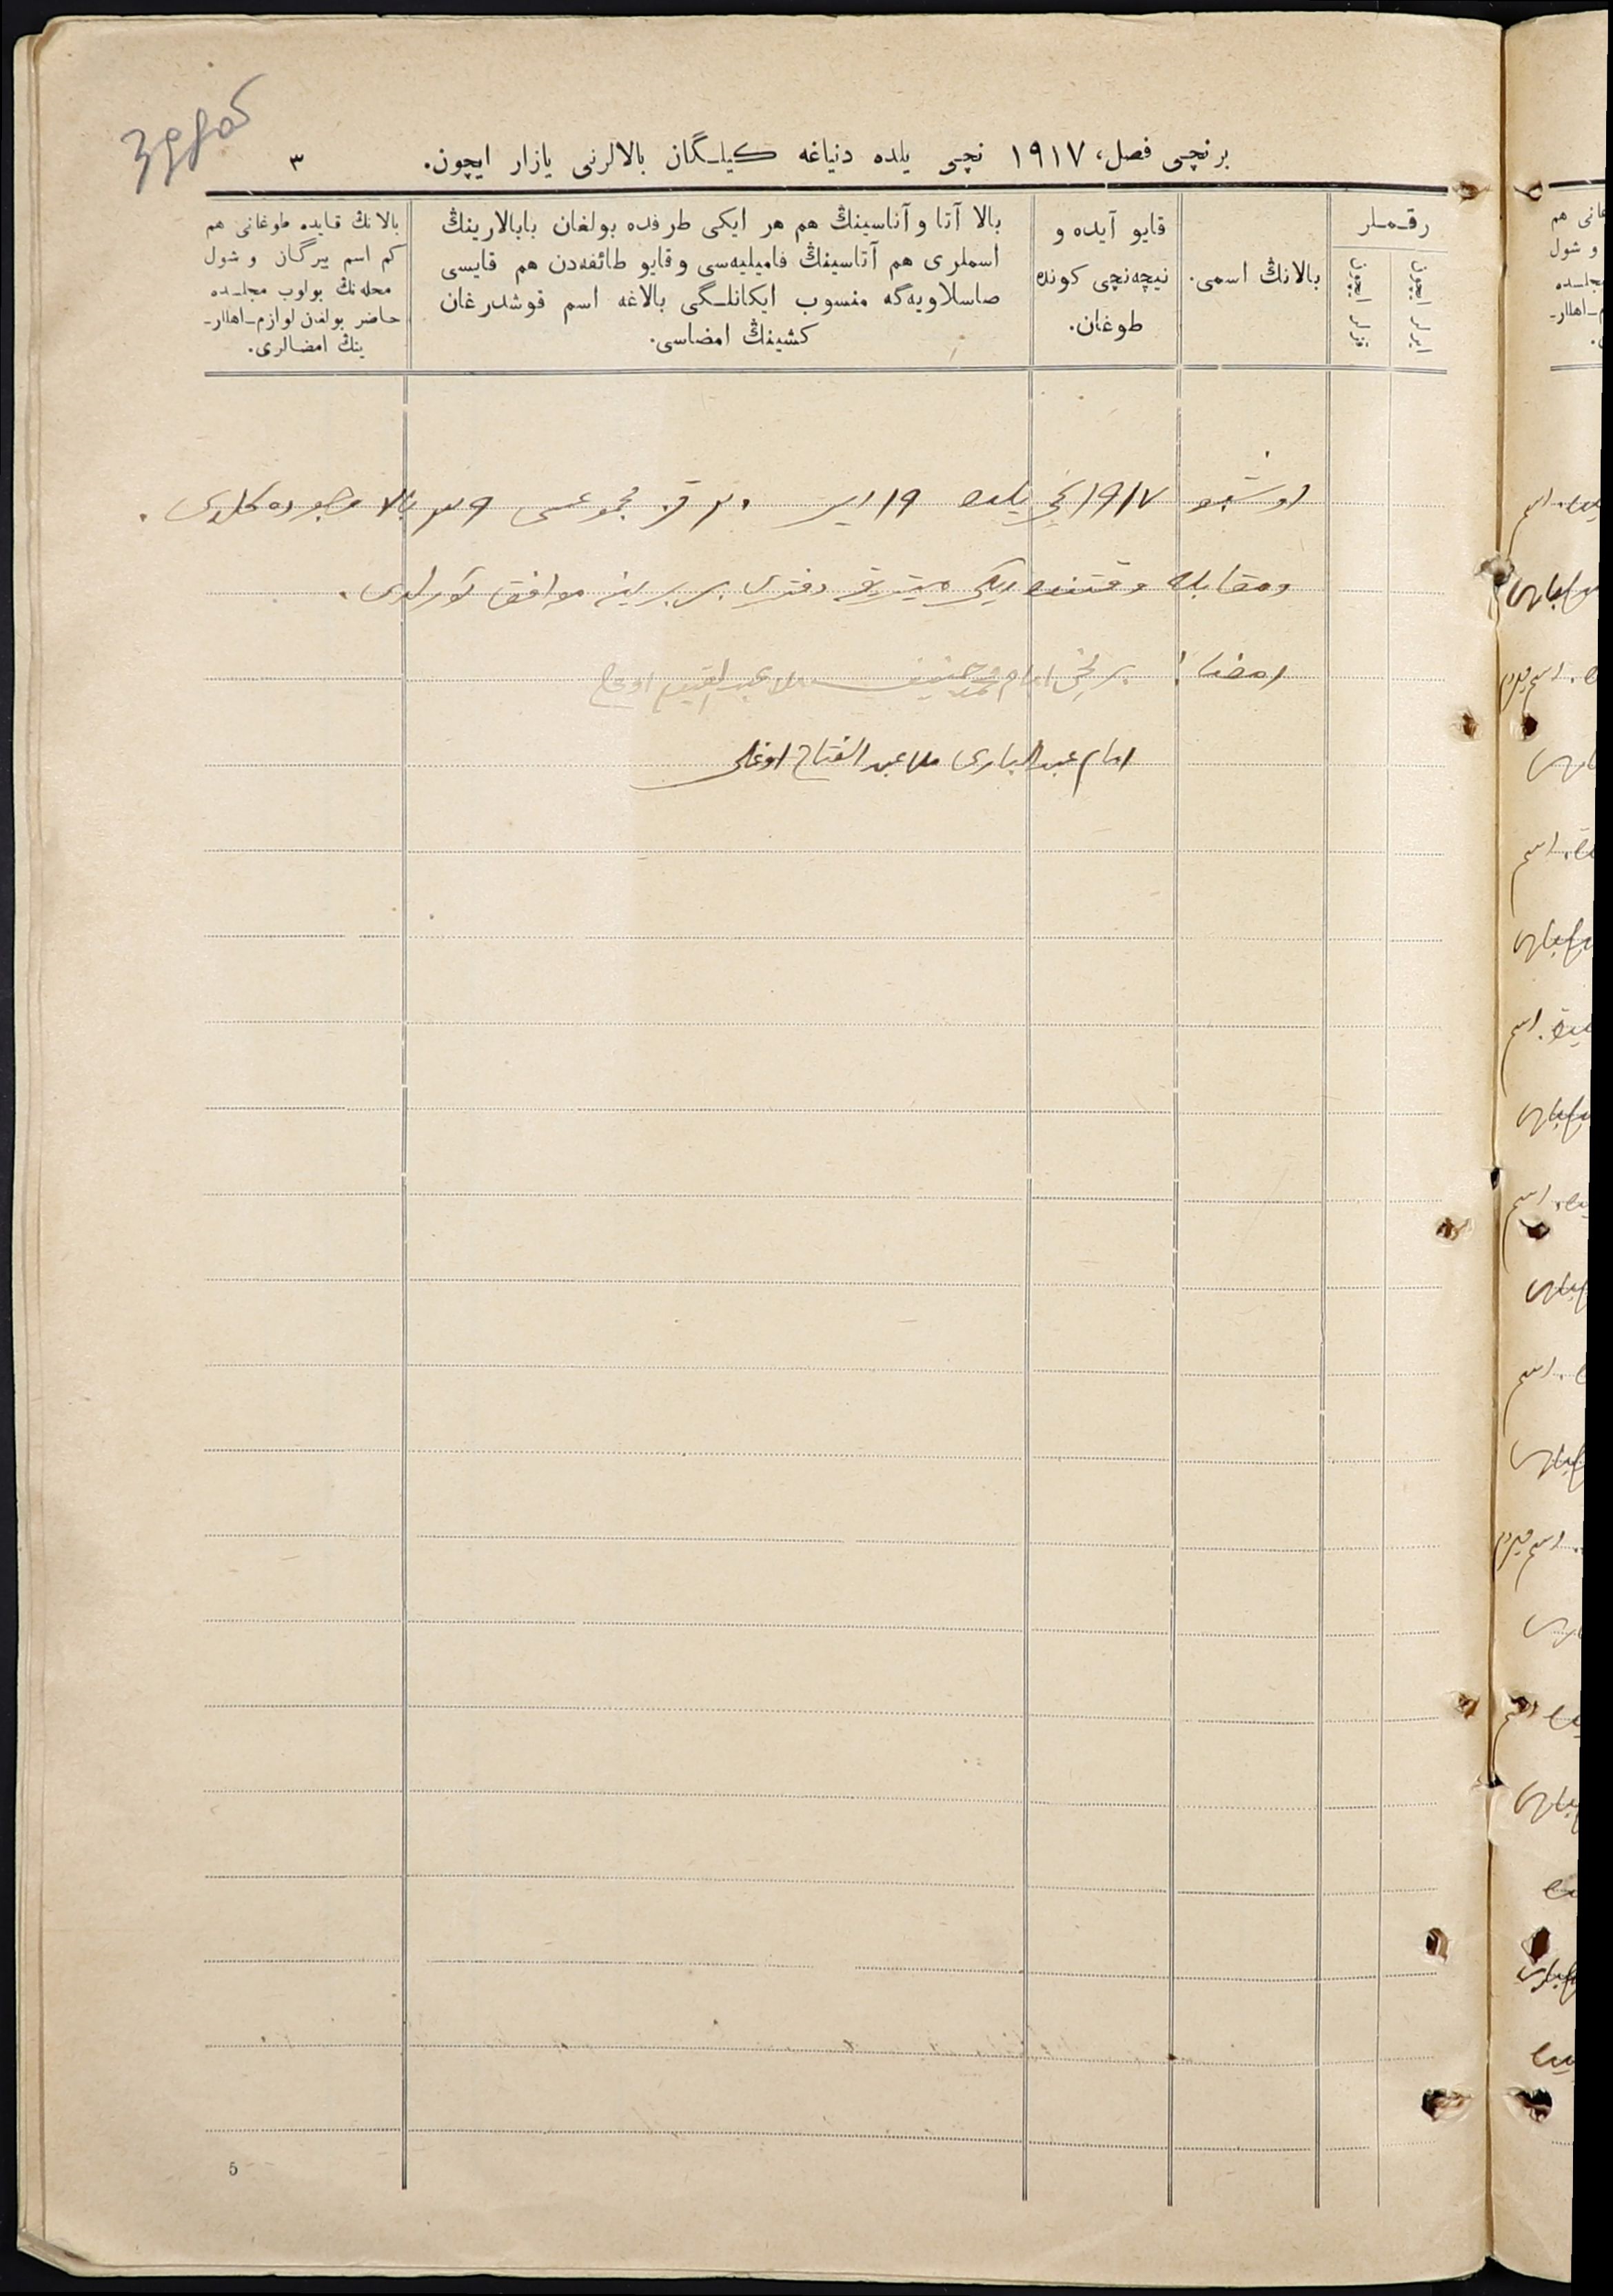 برنچی فصل، ١٩١٧ نچی یلده دنیاغه كیلـگان بالالرنی یازار ایچون.
٣
رقـمـلر
ایرلر ایچون
قزلر ایچون
بالانڭ اسمی.
قایو آیده و
نیچه‌نچی كونده
طوغان.
بالا آتا و آناسینڭ هم هر ایكی طرفده بولغان بابالارینڭ
اسملری هم آتاسینڭ فامیلیه‌سی و قایو طائفه‌دن هم قایسی
صاسلاویه‌گه منسوب ایكانلـگی بالاغه اسم قوشدرغان
كشینڭ امضاسی.
بالانڭ قایده طوغانی هم
كم اسم بیرگان و شول
محله‌نڭ بولوب مجلـده
حاضر بولغان لوازم-اهللر-
ینڭ امضالری.
اوشبو ١٩١٧ نچی یلده ١٩ ایر ٢٠ قز مجموعسی ٣٩ بالا وجوده كلدی.
ومقابله وقتنده ایكی میتریقه دفتری بر برینه موافق كورلدی.
امضا! برنچی امام محمد حنیف ملا عبدالقیوم اوغلی
امام عبدالباری ملا عبدالفتاح اوغلی
5